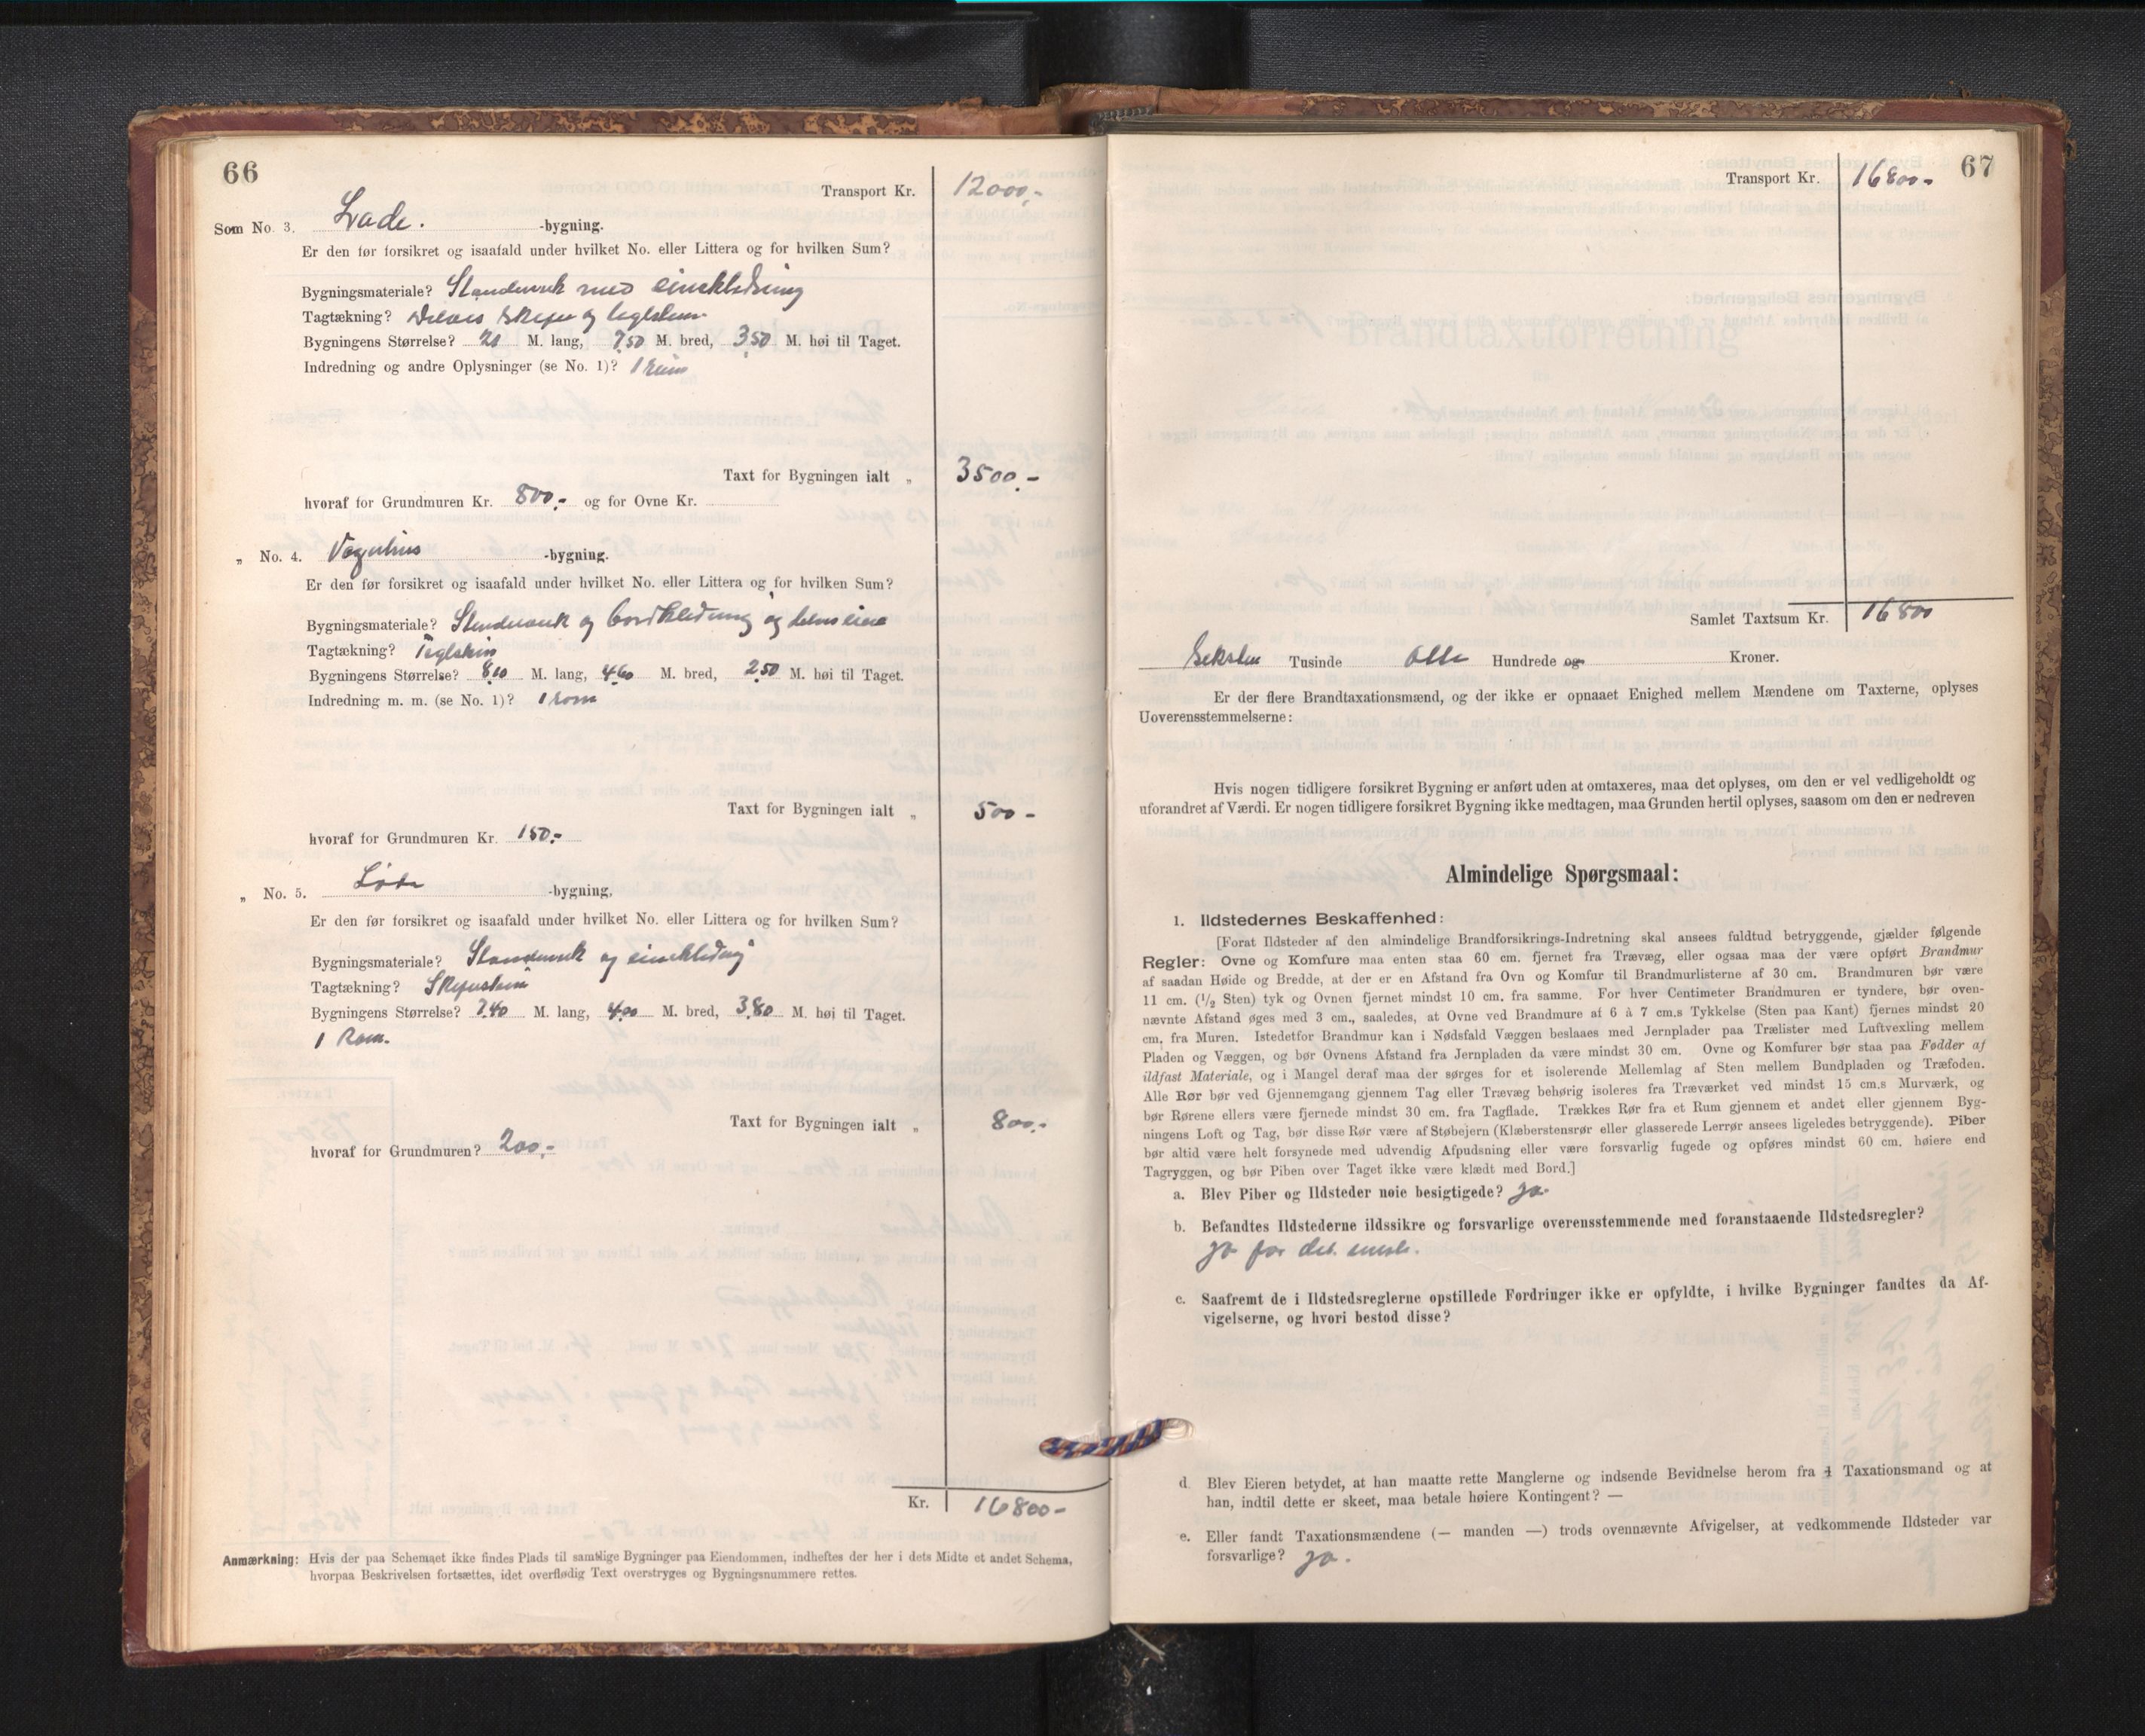 66
Transport Kr. 12000,-
Som No. 3, Lade. -bygning.
Er den før forsikret og isaafald under hvilket No. eller Littera og for hvilken Sum?
Bygningsmateriale? Standerverk med einekledning
Tagtækning? Delvis Skifer og teglsten
Bygningens Størrelse? 20 M. lang, 7,50 M. bred, 3,50 M. høi til Taget.
Indredning og andre Oplysninger (se No. 1)? 1 rum
Taxt for Bygningen ialt „ 3500,-
hvoraf for Grundmuren Kr. 800,- og for Ovne Kr.
„ No. 4. Vognhus -bygning.
Er den før forsikret og isaafald under hvilket No. eller Littera og for hvilken Sum?
Bygningsmateriale? Standerverk og bordkledning og delvis eine
Tagtækning? Teglsten
Bygningens Størrelse? 8,00 M. lang, 4,60 M. bred, 2,50 M. høi til Taget.
Indredning m. m. (se No. 1)? 1 rom
Taxt for Bygningen ialt „ 500-
hvoraf for Grundmuren Kr. 150,-
„ No. 5. -bygning,
Er den før forsikret og isaafald under hvilket No. eller Littera og for hvilken Sum?
Bygningsmateriale? Standerverk og einekledning
Tagtækning? Skifersten
Bygningens Størrelse? 7.40 M. lang, 4,00 M. bred, 3,80 M. høi til Taget.
1 Rom.
Taxt for Bygningen ialt „ 800,-
hvoraf for Grundmuren? 200,-
Kr. 16800-
Anmærkning: Hvis der paa Schemaet ikke findes Plads til samtlige Bygninger paa Eiendommen, indheftes der her i dets Midte et andet Schema,
hvorpaa Beskrivelsen fortsættes, idet overflødig Text overstryges og Bygningsnummere rettes.
67
Transport Kr. 16800-
Samlet Taxtsum Kr. 16800
Seksten Tusinde Otte Hundrede og Kroner.
Er der flere Brandtaxationsmænd, og der ikke er opnaaet Enighed mellem Mændene om Taxterne, oplyses
Uoverensstemmelserne:
Hvis nogen tidligere forsikret Bygning er anført uden at omtaxeres, maa det oplyses, om den er vel vedligeholdt og
uforandret af Værdi. Er nogen tidligere forsikret Bygning ikke medtagen, maa Grunden hertil oplyses, saasom om den er nedreven
Almindelige Spørgsmaal:
1. Ildstedernes Beskaffenhed:
[Forat Ildsteder af den almindelige Brandforsikrings-Indretning skal ansees fuldtud betryggende, gjælder følgende
Regler: Ovne og Komfure maa enten staa 60 cm. fjernet fra Trævæg, eller ogsaa maa der være opført Brandmur
af saadan Høide og Bredde, at der er en Afstand fra Ovn og Komfur til Brandmurlisterne af 30 cm. Brandmuren bør være
11 cm. (1/2 Sten) tyk og Ovnen fjernet mindst 10 cm. fra samme. For hver Centimeter Brandmuren er tyndere, bør oven-
nævnte Afstand øges med 3 cm., saaledes, at Ovne ved Brandmure af 6 à 7 cm.s Tykkelse (Sten paa Kant) fjernes mindst 20
cm. fra Muren. Istedetfor Brandmur kan i Nødsfald Væggen beslaaes med Jernplader paa Trælister med Luftvexling mellem
Pladen og Væggen, og bør Ovnens Afstand fra Jernpladen da være mindst 30 cm. Ovne og Komfurer bør staa paa Fødder af
ildfast Materiale, og i Mangel deraf maa der sørges for et isolerende Mellemlag af Sten mellem Bundpladen og Træfoden.
Alle Rør bør ved Gjennemgang gjennem Tag eller Trævæg behørig isoleres fra Træværket ved mindst 15 cm.s Murværk, og
bør Rørene ellers være fjernede mindst 30 cm. fra Tagflade. Trækkes Rør fra et Rum gjennem et andet eller gjennem Byg-
ningens Loft og Tag, bør disse Rør være af Støbejern (Klæberstensrør eller glasserede Lerrør ansees ligeledes betryggende). Piber
bør altid være helt forsynede med udvendig Afpudsning eller være forsvarlig fugede og opføres mindst 60 cm. høiere end
Tagryggen, og bør Piben over Taget ikke være klædt med Bord.]
a. Blev Piber og Ildsteder nøie besigtigede? ja.
b. Befandtes Ildstederne ildssikre og forsvarlige overensstemmende med foranstaaende Ildstedsregler?
ja for det meste.
c. Saafremt de i Ildstedsreglerne opstillede Fordringer ikke er opfyldte, i hvilke Bygninger fandtes da Af-
vigelserne, og hvori bestod disse?
d. Blev Eieren betydet, at han maatte rette Manglerne og indsende Bevidnelse herom fra 1 Taxationsmand og at
han, indtil dette er skeet, maa betale høiere Kontingent? —
e. Eller fandt Taxationsmændene (— manden —) trods ovennævnte Afvigelser, at vedkommende Ildsteder var
forsvarlige? ja.